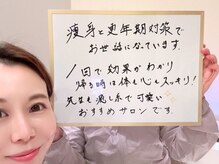 痩身と更年期対策で
お世話になっています。
1回で効果がわかり
帰る時には体も心もスッキリ!
先生も癒し系で可愛い
おすすめサロンです。